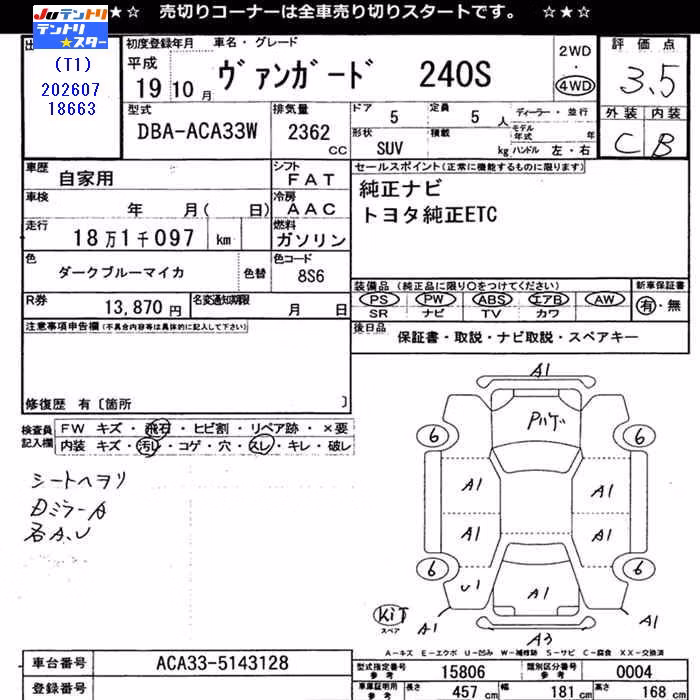 ☆★☆ 売切りコーナーは全車売り切りスタートです。 ☆★☆
JUテントリ
テントリ★スター
(T1)
202607
18663
初度登録年月 車名・グレード
平成
19 10月 ヴァンガード 240S
2WD
・
4WD
評価点
3.5
型式 排気量
DBA-ACA33W 2362 cc
ドア 5 定員 5 人 ディーラー・並行
形状 SUV 積載 kg モデル年式 年
ハンドル 左・右
外装 内装
C B
車歴 自家用
シフト FAT
車検 年 月( 日)
冷房 AAC
走行 18万1千097 km
燃料 ガソリン
色 ダークブルーマイカ 色替
色コード 8S6
R券 13,870円 名変通知期限 月 日
セールスポイント(正常に機能するものに限ります)
純正ナビ
トヨタ純正ETC
装備品 (純正品に限り○をつけてください) 新車保証書
PS PW ABS エアB AW 有・無
SR ナビ TV カワ
後日品 保証書・取説・ナビ取説・スペアキー
注意事項申告欄(不具合内容等は具体的に記入して下さい)
修復歴 有〔箇所 〕
検査員記入欄
FW キズ・飛石・ヒビ割・リペア跡・×要
内装 キズ・汚れ・コゲ・穴・スレ・キレ・破レ
シートヘタリ
DミラーA
右A.U
A1
Pハゲ
6 6
A1 A1
A1 A1
6 6
U1 A1
KiT
スペア
A1 A1
A3
A-キズ E-エクボ U-凹み W-補修跡 S-サビ C-腐食 XX-交換済
車台番号 ACA33-5143128
登録番号
型式指定番号 参考 15806 類別区分番号 参考 0004
車庫証明用 参考 長さ 457 cm 幅 181 cm 高さ 168 cm